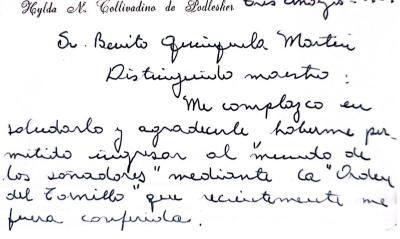 Hylda N. Collivadino de Podlesker Tres Arroyos
Sr. Benito Quinquela Martin
Distinguido maestro:
Me complazco en
saludarlo y agradecerle haberme per-
mitido ingresar al "mundo de
los soñadores" mediante la "Orden
del Tornillo" que recientemente me
fuera conferida.